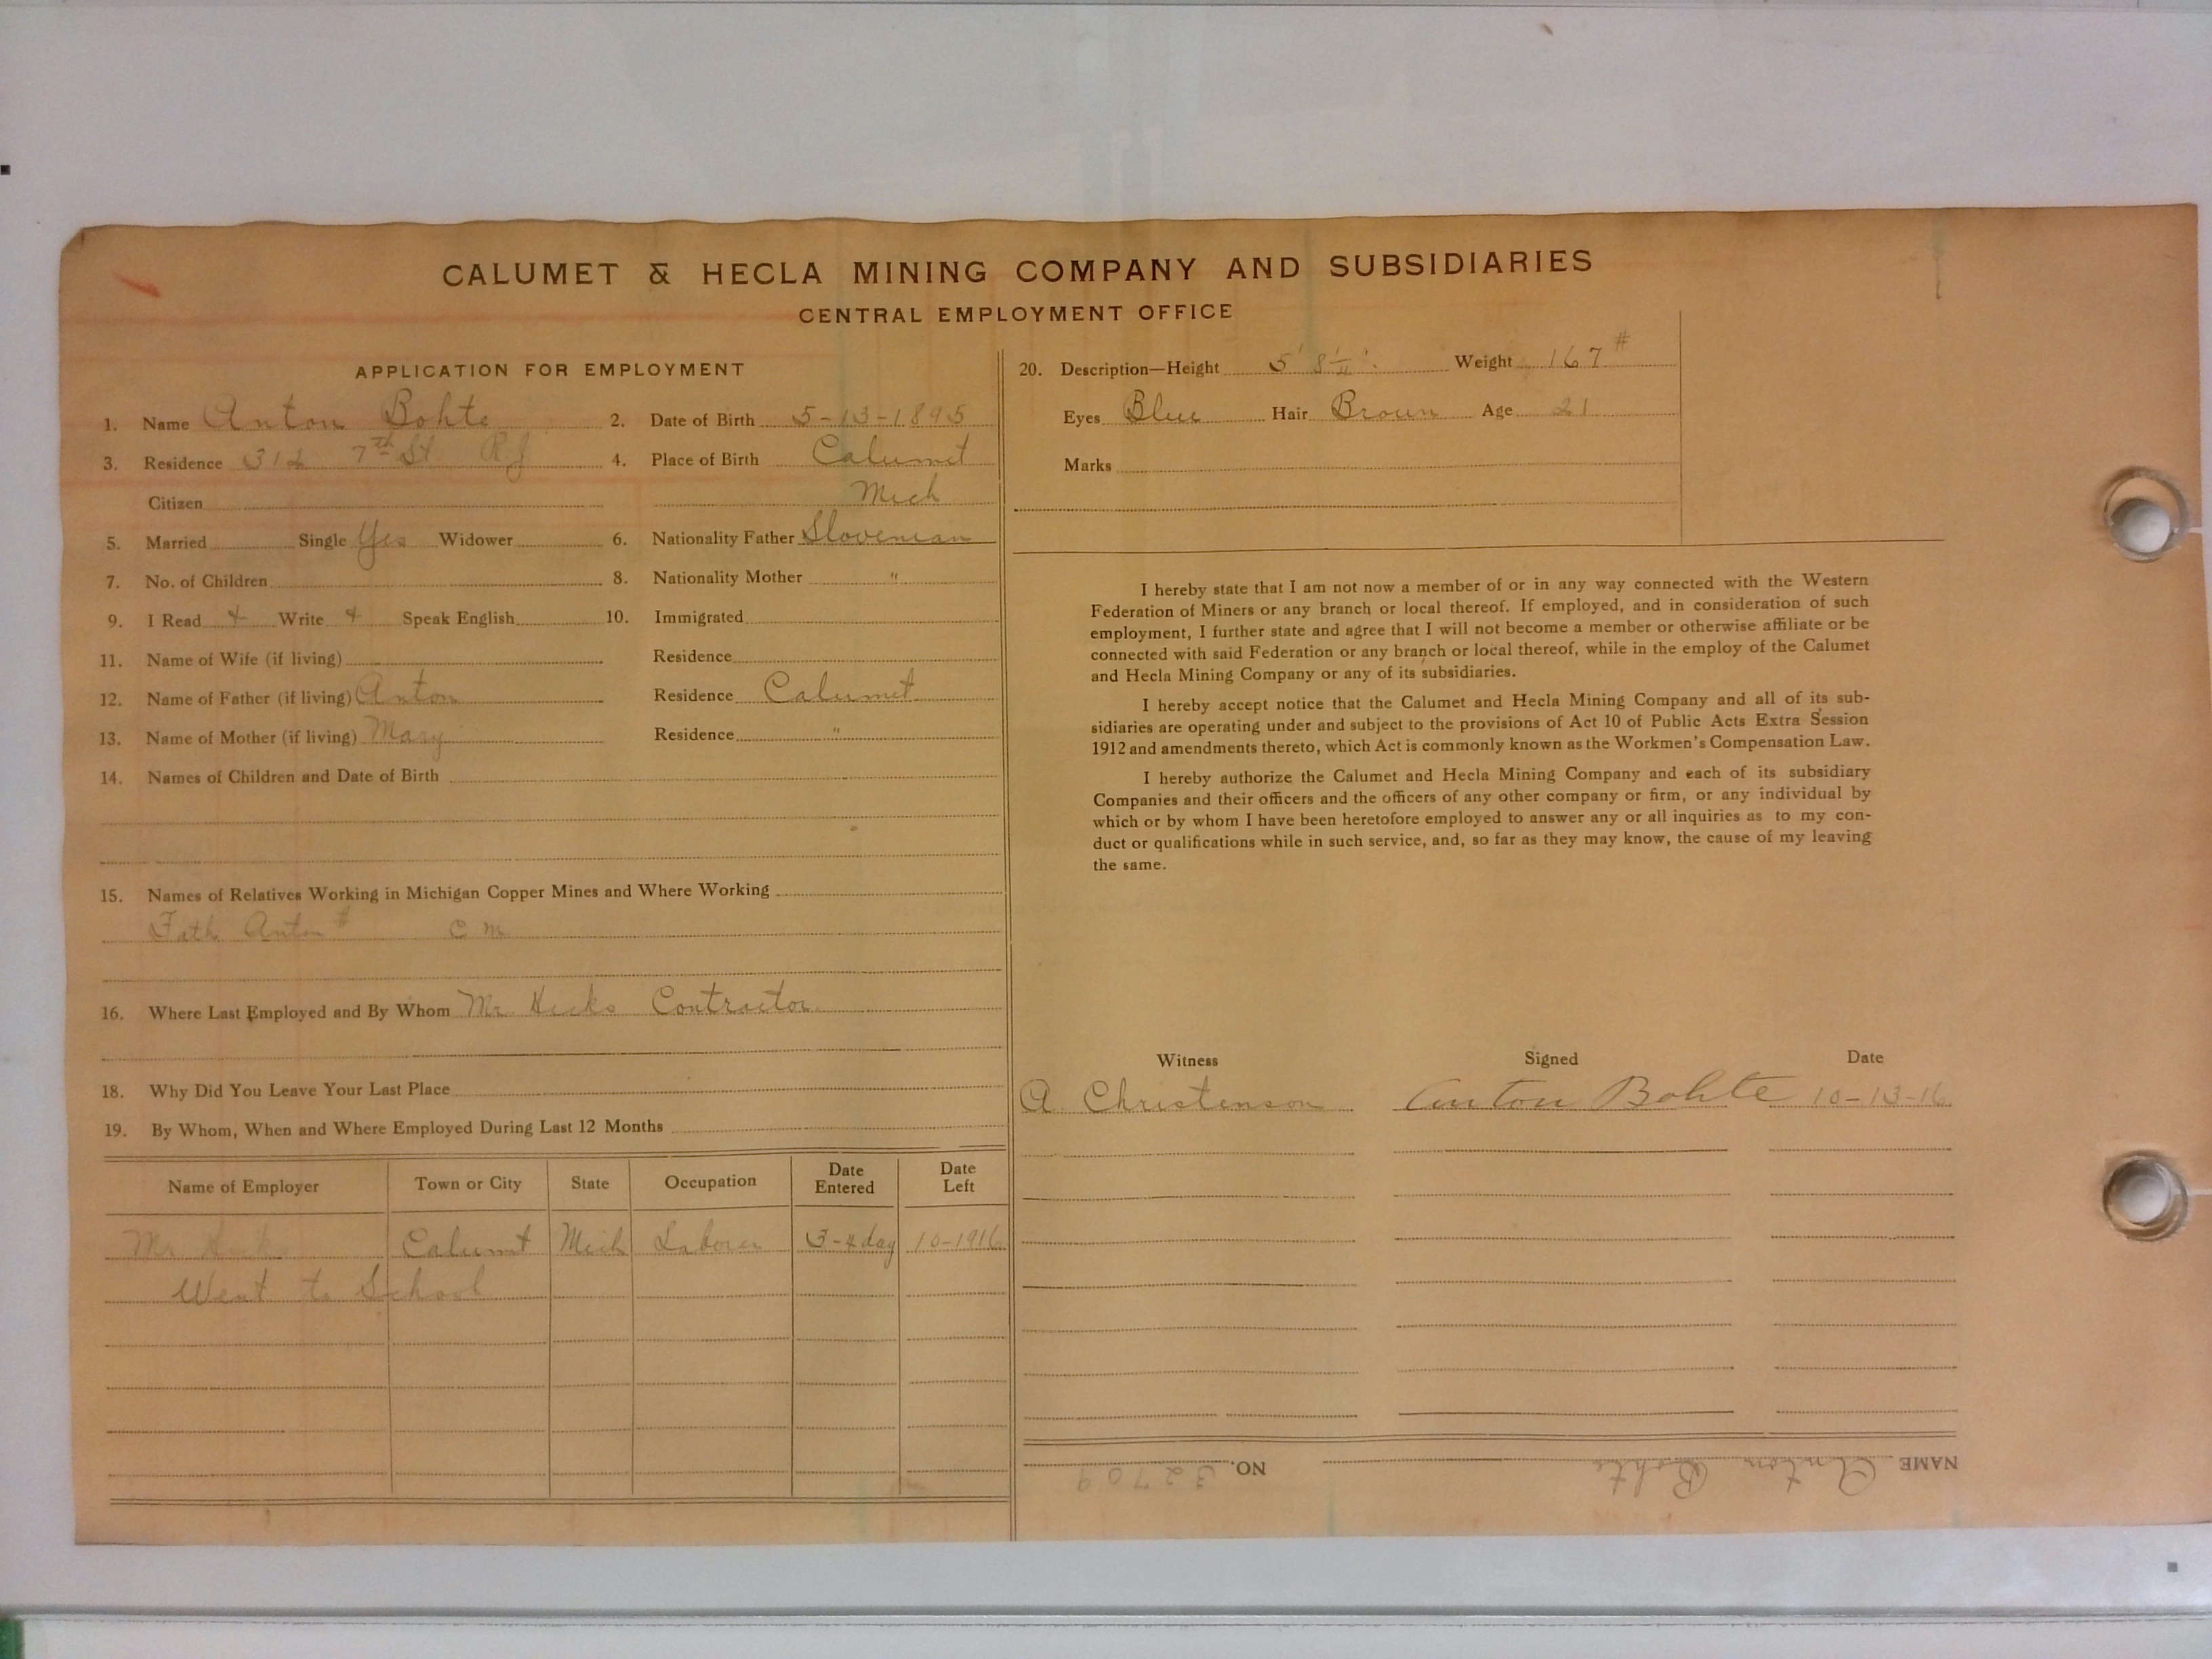 CALUMET & HECLA MINING COMPANY AND SUBSIDIARIES
CENTRAL EMPLOYMENT OFFICE
APPLICATION FOR EMPLOYMENT
1. Name Anton Bohte 2. Date of Birth 5-13-1895
3. Residence 312 7th St RJ 4. Place of Birth Calumet
Citizen Mich
5. Married Single Yes Widower 6. Nationality Father Slovenian
7. No. of Children 8. Nationality Mother "
9. I Read 4 Write 4 Speak English 10. Immigrated
11. Name of Wife (if living) Residence
12. Name of Father (if living) Anton Residence Calumet
13. Name of Mother (if living) Mary Residence "
14. Names of Children and Date of Birth
15. Names of Relatives Working in Michigan Copper Mines and Where Working
Fath Anton # C M
16. Where Last Employed and By Whom Mr. Hicks Contractor
18. Why Did You Leave Your Last Place
19. By Whom, When and Where Employed During Last 12 Months
Name of Employer Town or City State Occupation Date Entered Date Left
Mr Hicks Calumt Mich Laborer 3-4 day 10-1916
Went to School
20. Description—Height 5' 8 Weight 167 #
Eyes Blue Hair Brown Age 21
Marks
I hereby state that I am not now a member of or in any way connected with the Western
Federation of Miners or any branch or local thereof. If employed, and in consideration of such
employment, I further state and agree that I will not become a member or otherwise affiliate or be
connected with said Federation or any branch or local thereof, while in the employ of the Calumet
and Hecla Mining Company or any of its subsidiaries.
I hereby accept notice that the Calumet and Hecla Mining Company and all of its sub-
sidiaries are operating under and subject to the provisions of Act 10 of Public Acts Extra Session
1912 and amendments thereto, which Act is commonly known as the Workmen's Compensation Law.
I hereby authorize the Calumet and Hecla Mining Company and each of its subsidiary
Companies and their officers and the officers of any other company or firm, or any individual by
which or by whom I have been heretofore employed to answer any or all inquiries as to my con-
duct or qualifications while in such service, and, so far as they may know, the cause of my leaving
the same.
Witness Signed Date
A. Christenson Anton Bohte 10-13-16
NAME Anton Bohte NO. 32709